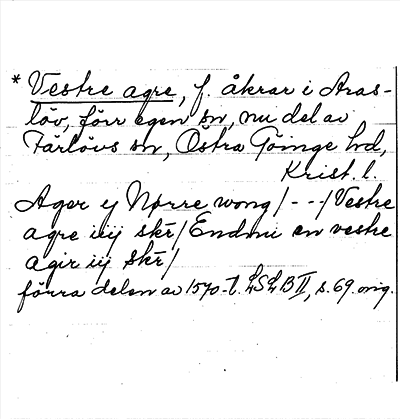 * Vestre agre, f. åkrar i Aras-
löv, förr egen sn, nu del av
Färlövs sn, Östra Göinge hd,
Krist. l.
Ager ij Nørre wong/ - - -/Vestre
agre iiij skr/ Endnu en vestre
agir iij skr/
förra delen av 1570-t. LSLB II, s. 69. orig.